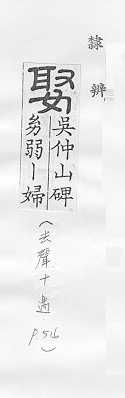 隸辨
娶
吳仲山碑
幼弱｜婦
(去聲十遇
P516)